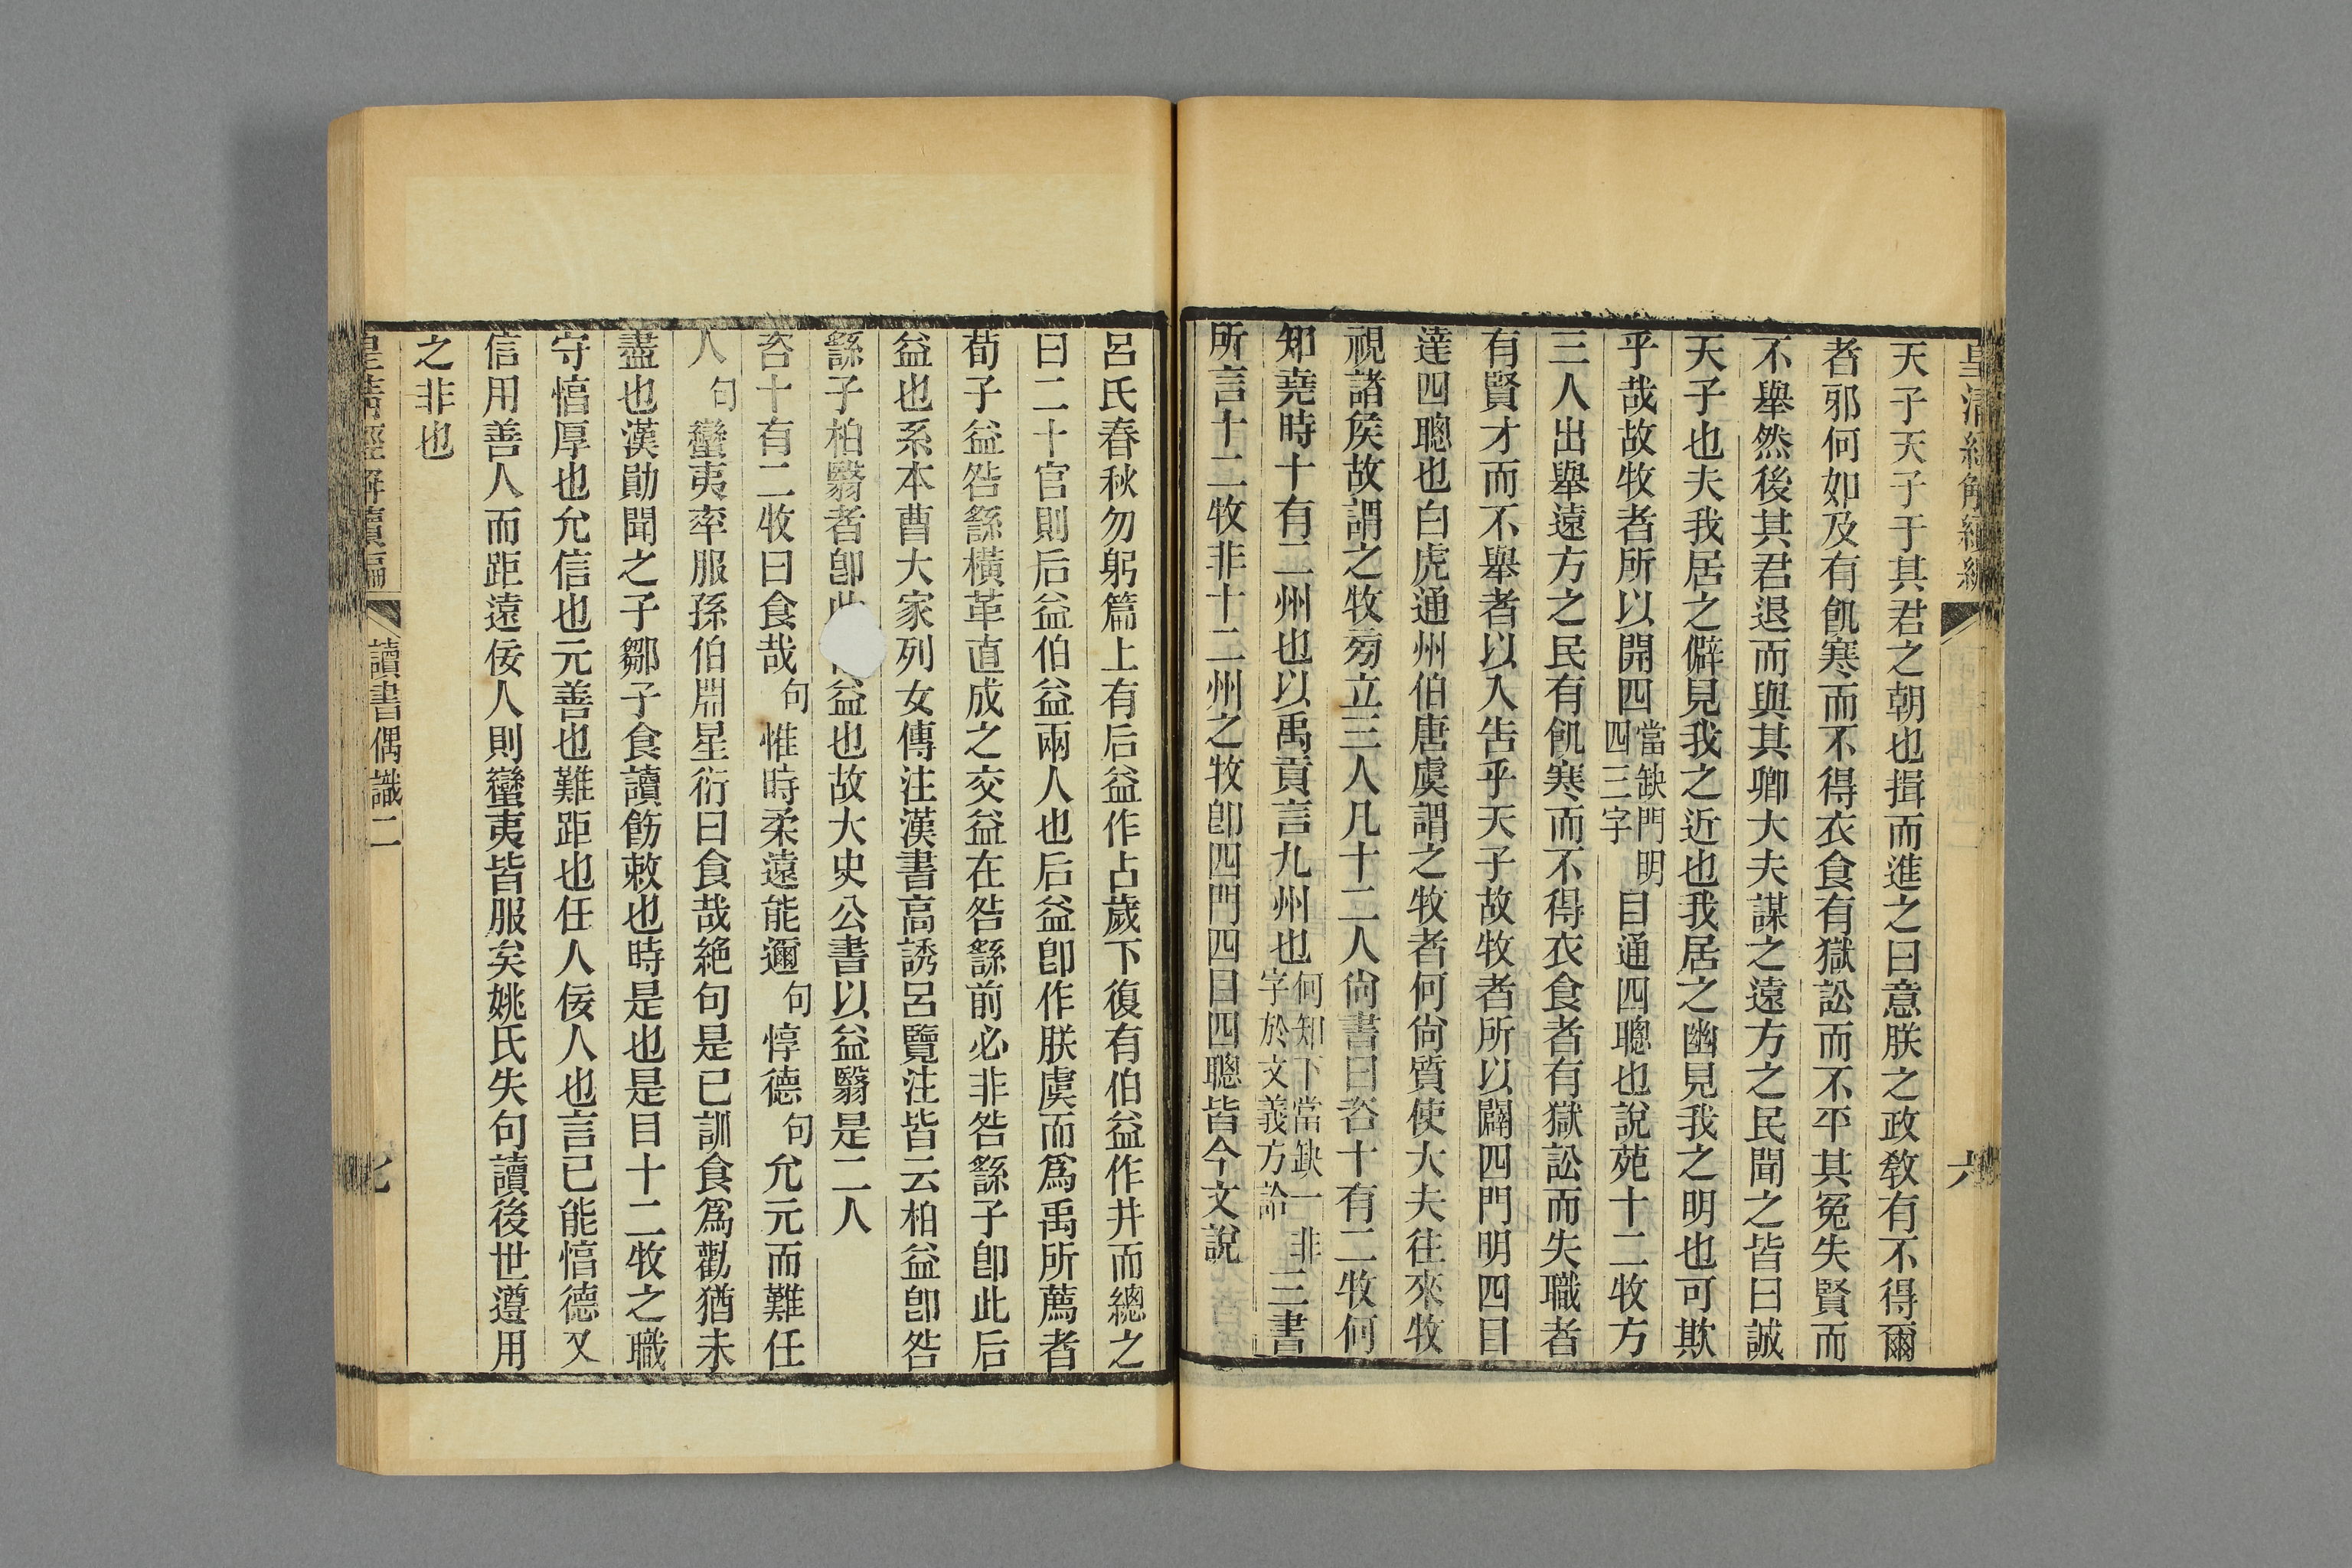 皇清經解續編
六
天子天子于其君之朝也揖而進之曰意朕之政敎有不得爾
者邪何如及有飢寒而不得衣食有獄訟而不平其冤失賢而
不舉然後其君退而與其卿大夫謀之遠方之民聞之皆曰誠
天子也夫我居之僻見我之近也我居之幽見我之明也可欺
乎哉故牧者所以開四當缺門明四三字目通四聰也說苑十二牧方
三人出舉遠方之民有飢寒而不得衣食者有獄訟而失職者
有賢才而不舉者以入告乎天子故牧者所以闢四門明四目
達四聰也白虎通州伯唐虞謂之牧者何尙質使大夫往來牧
視諸矦故謂之牧旁立三人凡十二人尙書曰咨十有二牧何
知堯時十有二州也以禹貢言九州也何知下當缺一非字於文義方論三書
所言十二牧非十二州之牧卽四門四目四聰皆今文說
呂氏春秋勿躬篇上有后益作占歲下復有伯益作井而總之
曰二十官則后益伯益兩人也后益卽作朕虞而爲禹所薦者
荀子益咎繇橫革直成之交益在咎繇前必非咎繇子卽此后
益也系本曹大家列女傳注漢書高誘呂覽注皆云柏益卽咎
繇子柏翳者卽益也故大史公書以益翳是二人
咨十有二牧曰食哉句惟時柔遠能邇句惇德句允元而難任
人句蠻夷率服孫伯淵星衍曰食哉絶句是已訓食爲勸猶未
盡也漢勛聞之子鄒子食讀飭敕也時是也是目十二牧之職
守惇厚也允信也元善也難距也任人佞人也言已能惇德又
信用善人而距遠佞人則蠻夷皆服矣姚氏失句讀後世遵用
之非也
皇淸經解續編
讀書偶識二
七